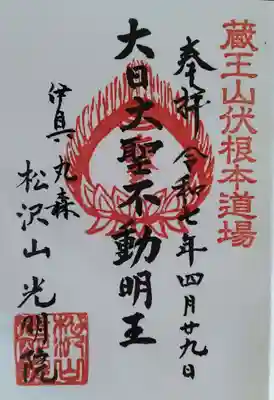 蔵王山伏根本道場
奉拝 令和七年四月廿九日
大日大聖不動明王
伊具丸森
松沢山光明院